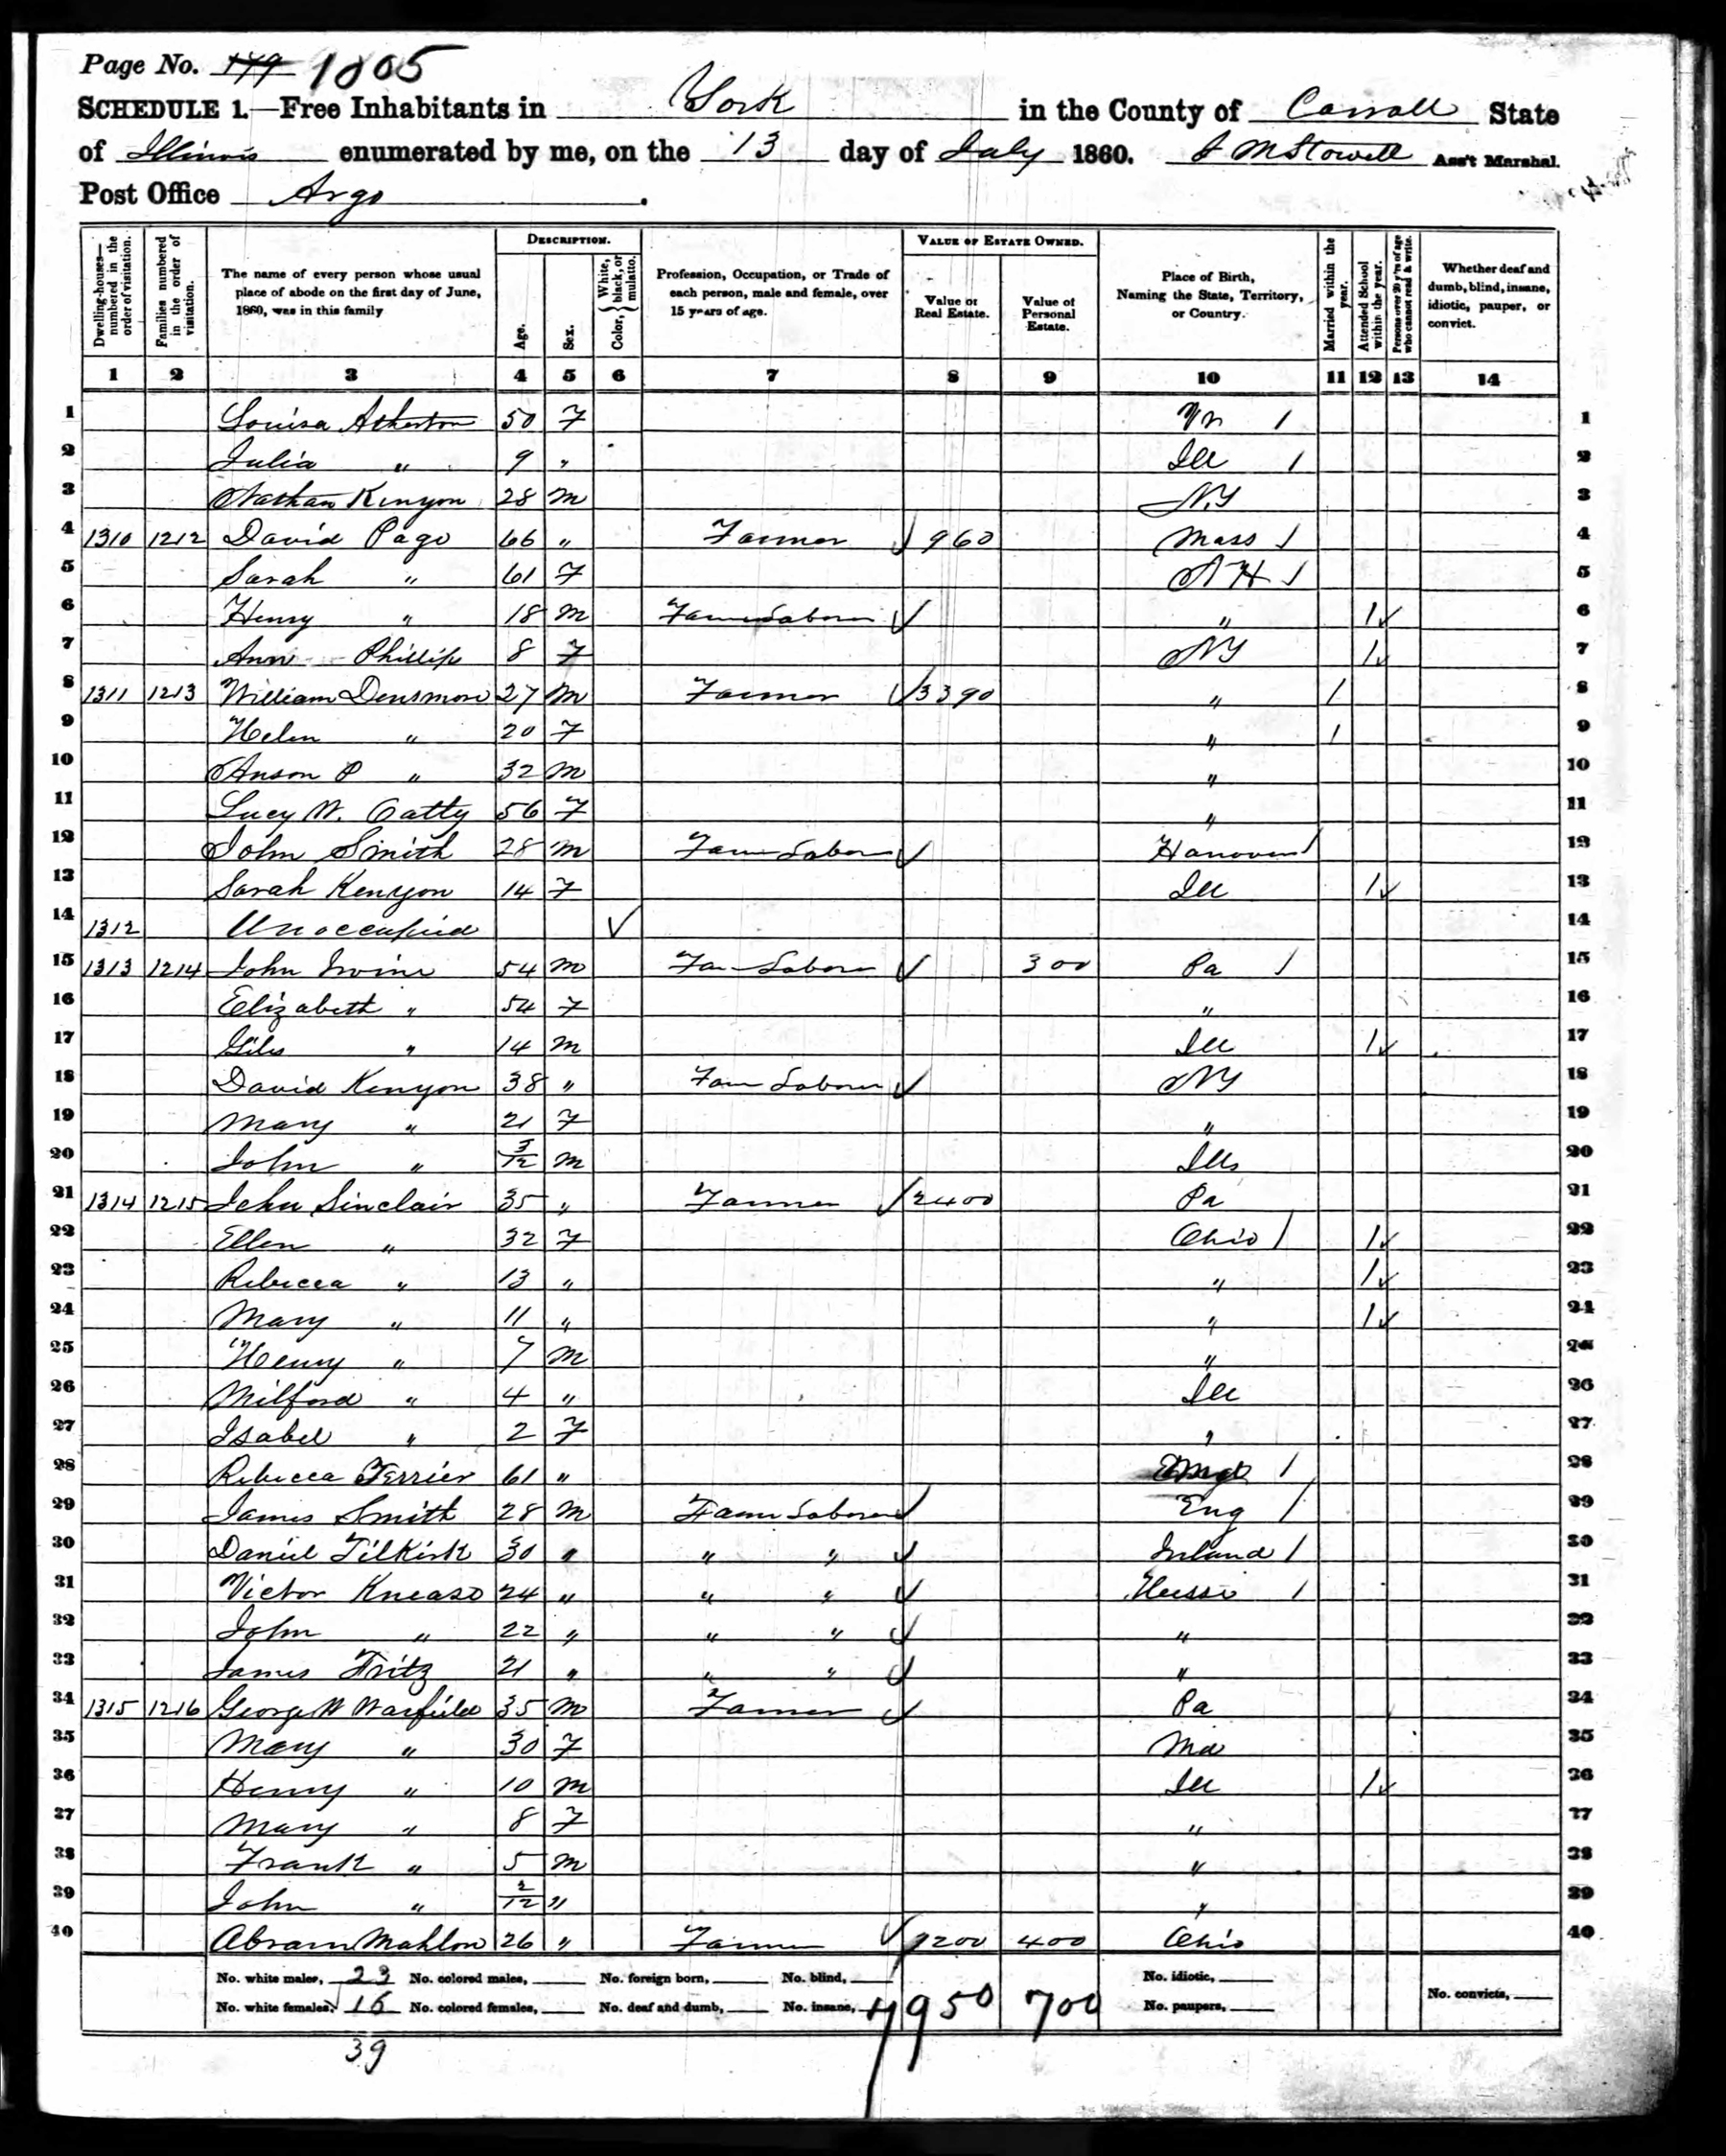 Page No. 149 1805
SCHEDULE 1.—Free Inhabitants in York in the County of Carroll State
of Illinois enumerated by me, on the 13 day of July 1860. Stowell Ass't Marshal.
Post Office Argo .
Dwelling-houses—numbered in the order of visitation. Families numbered in the order of visitation. The name of every person whose usual place of abode on the first day of June, 1860, was in this family DESCRIPTION. Age. Sex. Color, { White, black, or mulatto. Profession, Occupation, or Trade of each person, male and female, over 15 years of age. VALUE OF ESTATE OWNED. Value of Real Estate. Value of Personal Estate. Place of Birth, Naming the State, Territory, or Country. Married within the year. Attended School within the year. Persons over 20 y'rs of age who cannot read & write. Whether deaf and dumb, blind, insane, idiotic, pauper, or convict.
1 2 3 4 5 6 7 8 9 10 11 12 13 14
1 Louisa Atherton 50 F / 1
2 Julia " 9 " Ill / 2
3 Nathan Kenyon 28 M NY 3
4 1310 1212 David Page 66 " Farmer 960 Mass / 4
5 Sarah " 61 F NH / 5
6 Henry " 18 M Farm Laborer " 1 6
7 Ann Phillips 8 F NY 1 7
8 1311 1213 William Densmore 27 M Farmer 3390 " / 8
9 Helen " 20 F " / 9
10 Anson P " 32 M " 10
11 Lucy W. Catty 56 F " 11
12 John Smith 28 M Farm Laborer Hanover / 12
13 Sarah Kenyon 14 F Ill 1 13
14 1312 Unoccupied 14
15 1313 1214 John Irvine 54 M Farm Laborer 300 Pa / 15
16 Elizabeth " 54 F " 16
17 Giles " 14 M Ill 1 17
18 David Kenyon 38 " Farm Laborer NY 18
19 Mary " 21 F " 19
20 John " 3/12 M Ills 20
21 1314 1215 John Sinclair 35 " Farmer 2400 Pa 21
22 Ellen " 32 F Ohio / 1 22
23 Rebecca " 13 " " 1 23
24 Mary " 11 " " 1 24
25 Henry " 7 M " 25
26 Milford " 4 " Ill 26
27 Isabel " 2 F " 27
28 Rebecca Ferrier 61 " / 28
29 James Smith 28 M Farm Laborer Eng / 29
30 Daniel Tilkirk 30 " " " Ireland / 30
31 Victor Knease 24 " " " Hesse / 31
32 John " 22 " " " " 32
33 James Fritz 21 " " " " 33
34 1315 1216 George W Warfield 35 M Farmer Pa 34
35 Mary " 30 F Md 35
36 Henry " 10 M Ill 1 36
37 Mary " 8 F " 37
38 Frank " 5 M " 38
39 John " 2/12 " " 39
40 Abram Mahlon 26 " Farmer 1200 400 Ohio 40
No. white males, 23 No. colored males, No. foreign born, No. blind, No. idiotic,
No. white females, 16 No. colored females, No. deaf and dumb, No. insane, 7950 700 No. paupers, No. convicts,
39